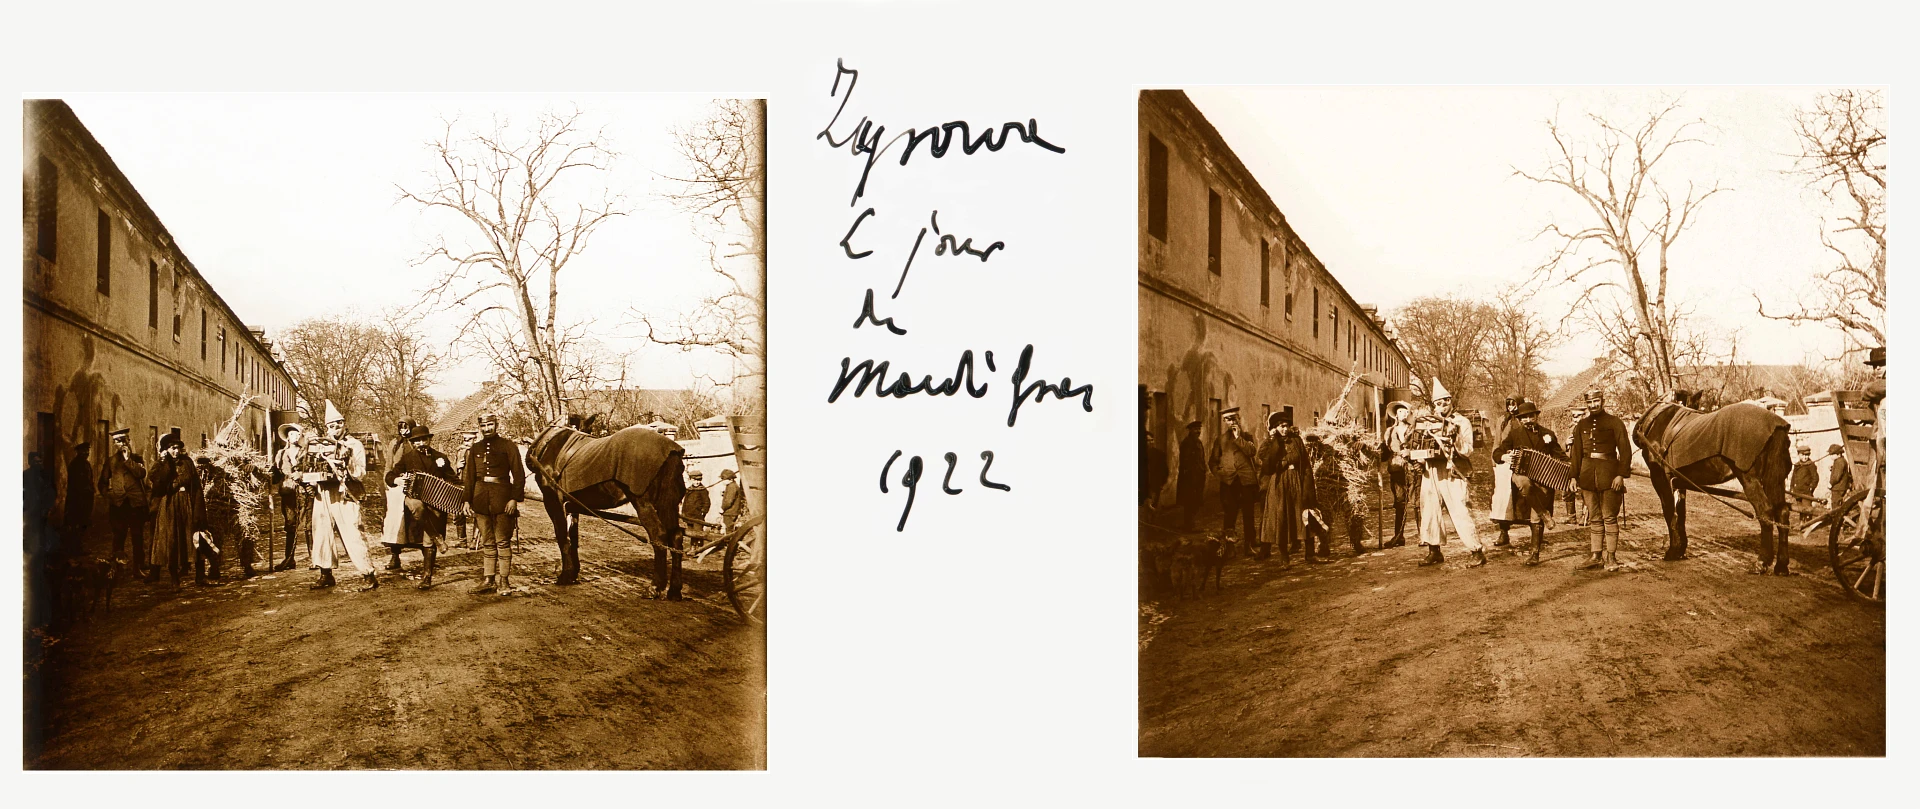 Zyrowa
le jour
de
Mardi gras
1922